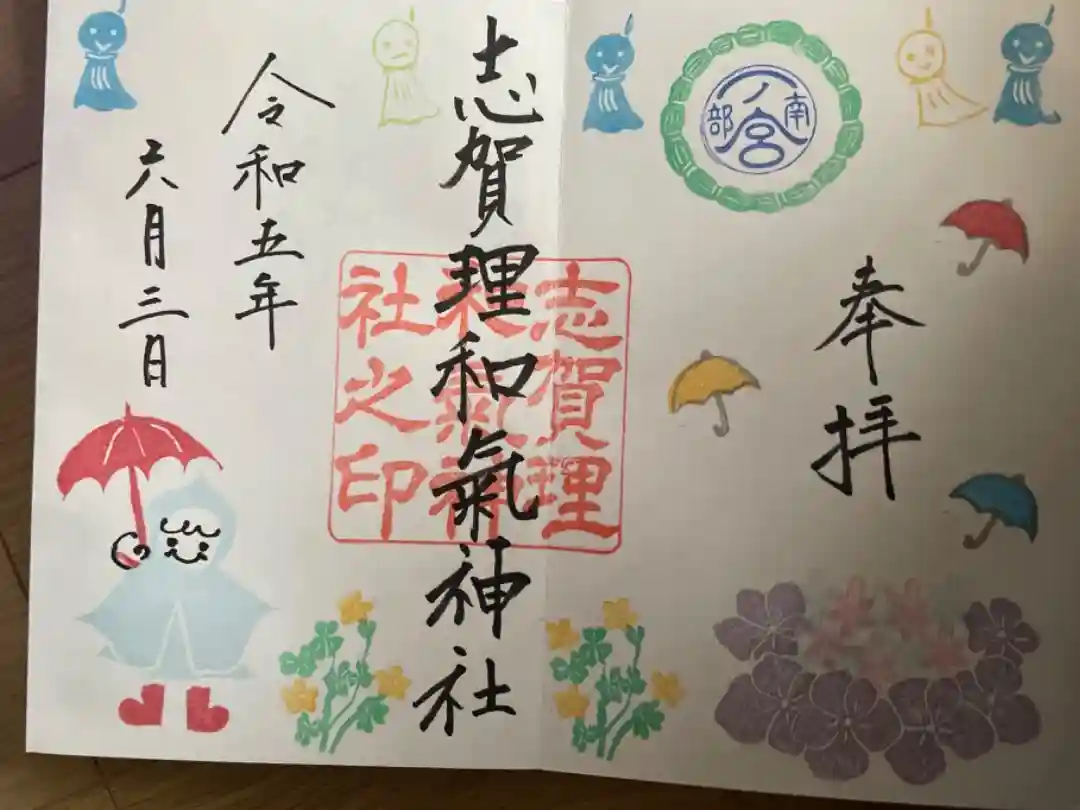 南部一ノ宮
奉拝
志賀理和氣神社
志賀理
和氣神
社之印
令和五年
六月三日